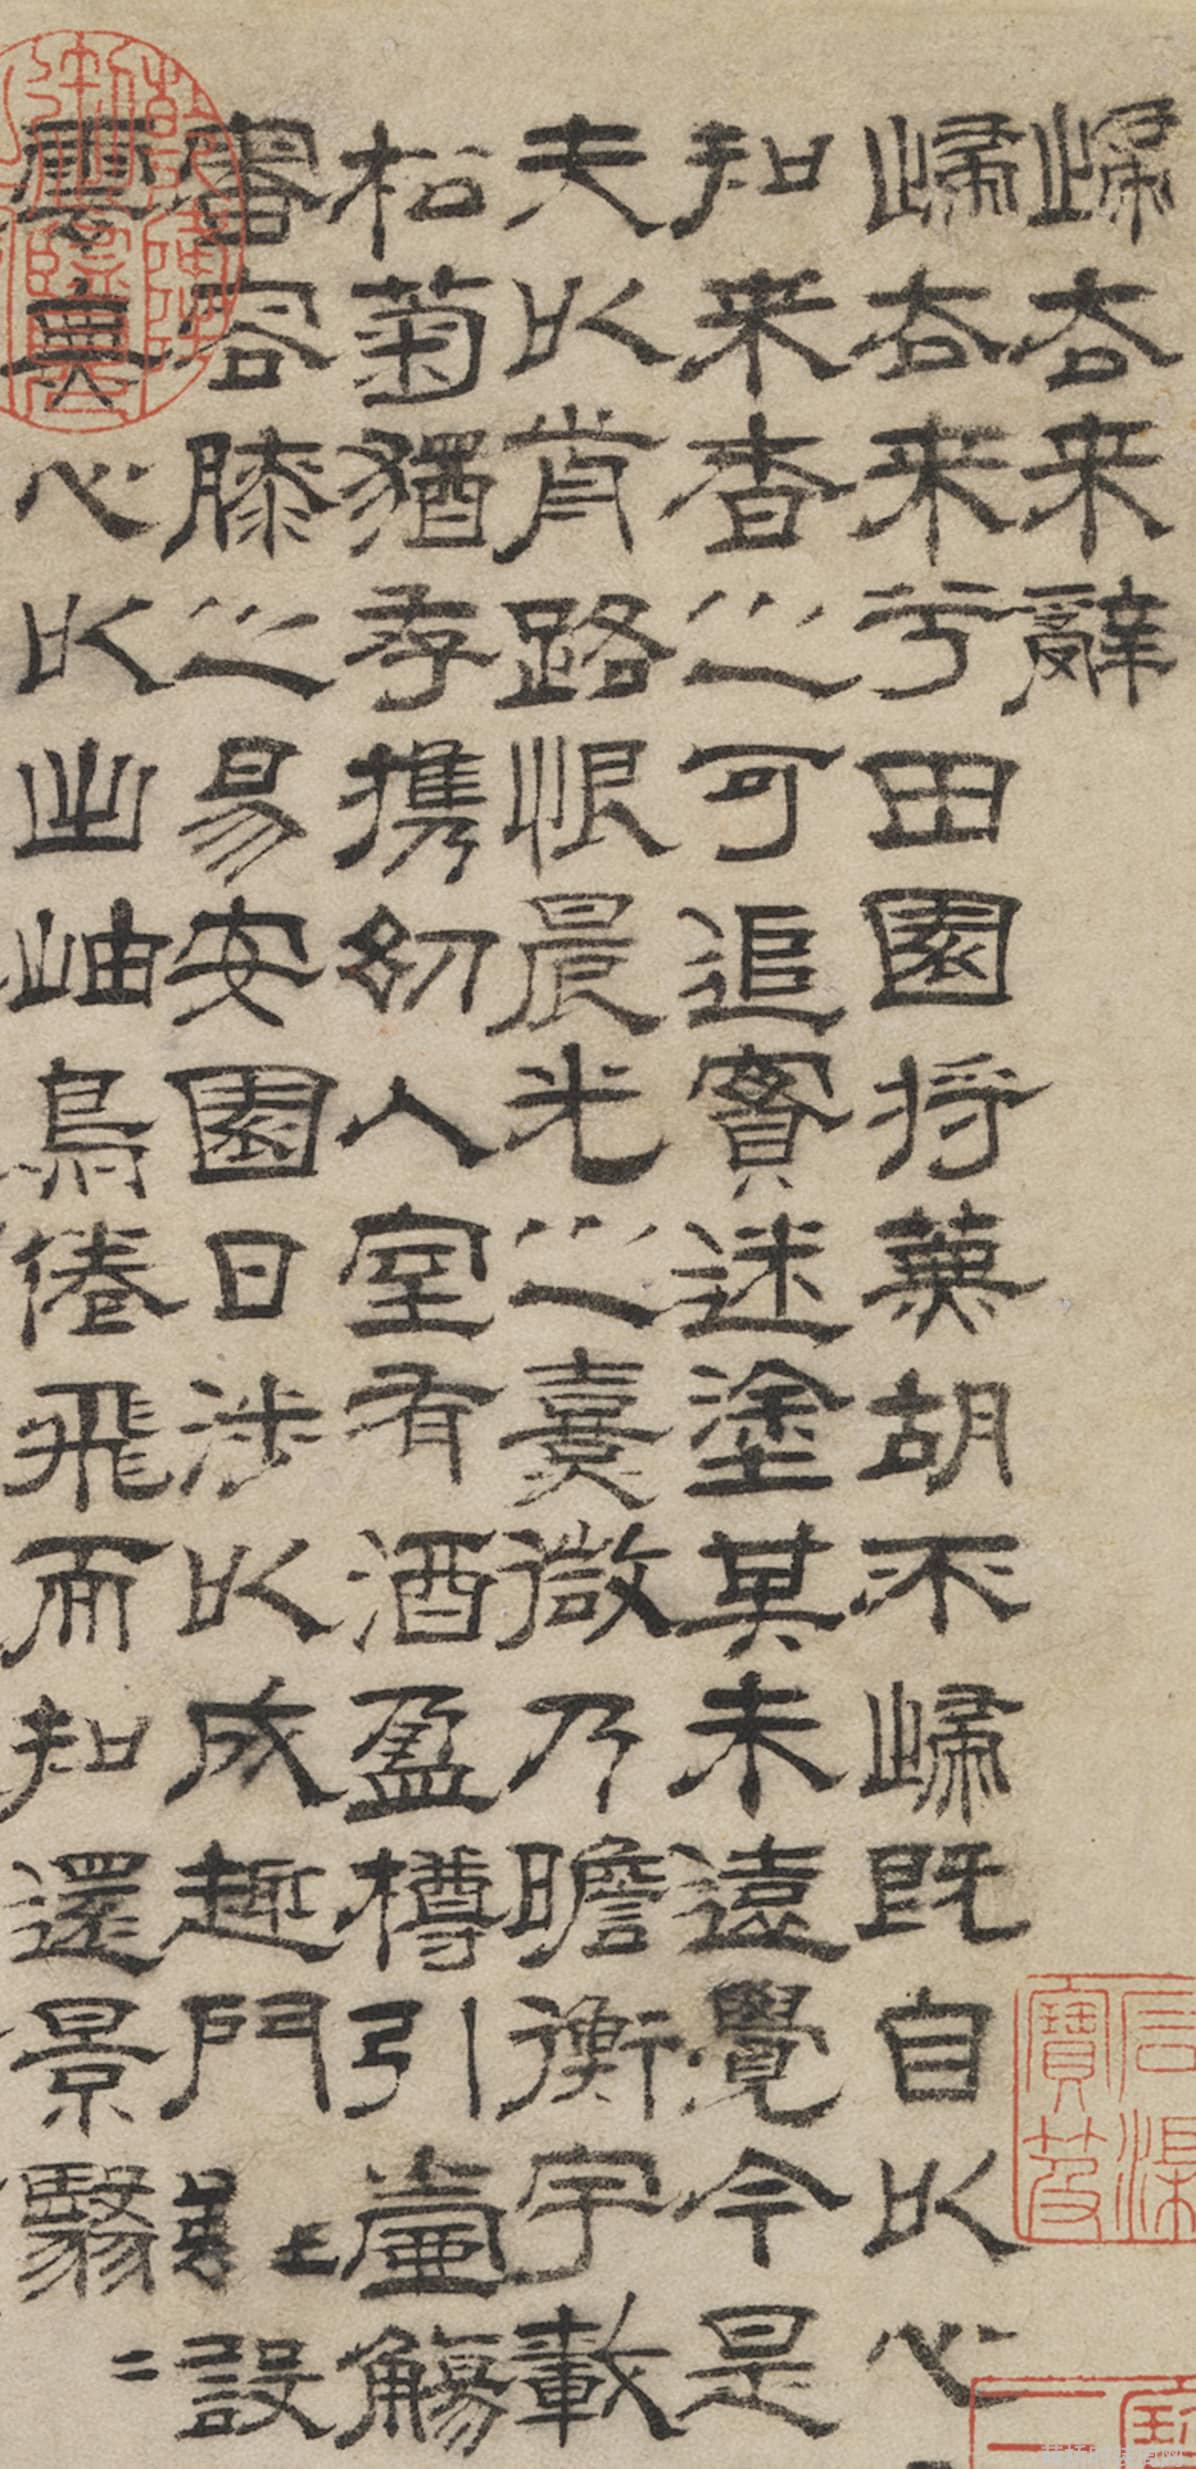 歸去来辭
歸去来兮田園将蕪胡不歸既自以心
知来者之可追實迷塗其未遠覺今是
夫以前路恨晨光之熹微乃瞻衡宇載
松菊猶存携幼入室有酒盈樽引壺觴
審容膝之易安園日涉以成趣門雖設
雲無心以出岫鳥倦飛而知還景翳〻
石渠寶笈